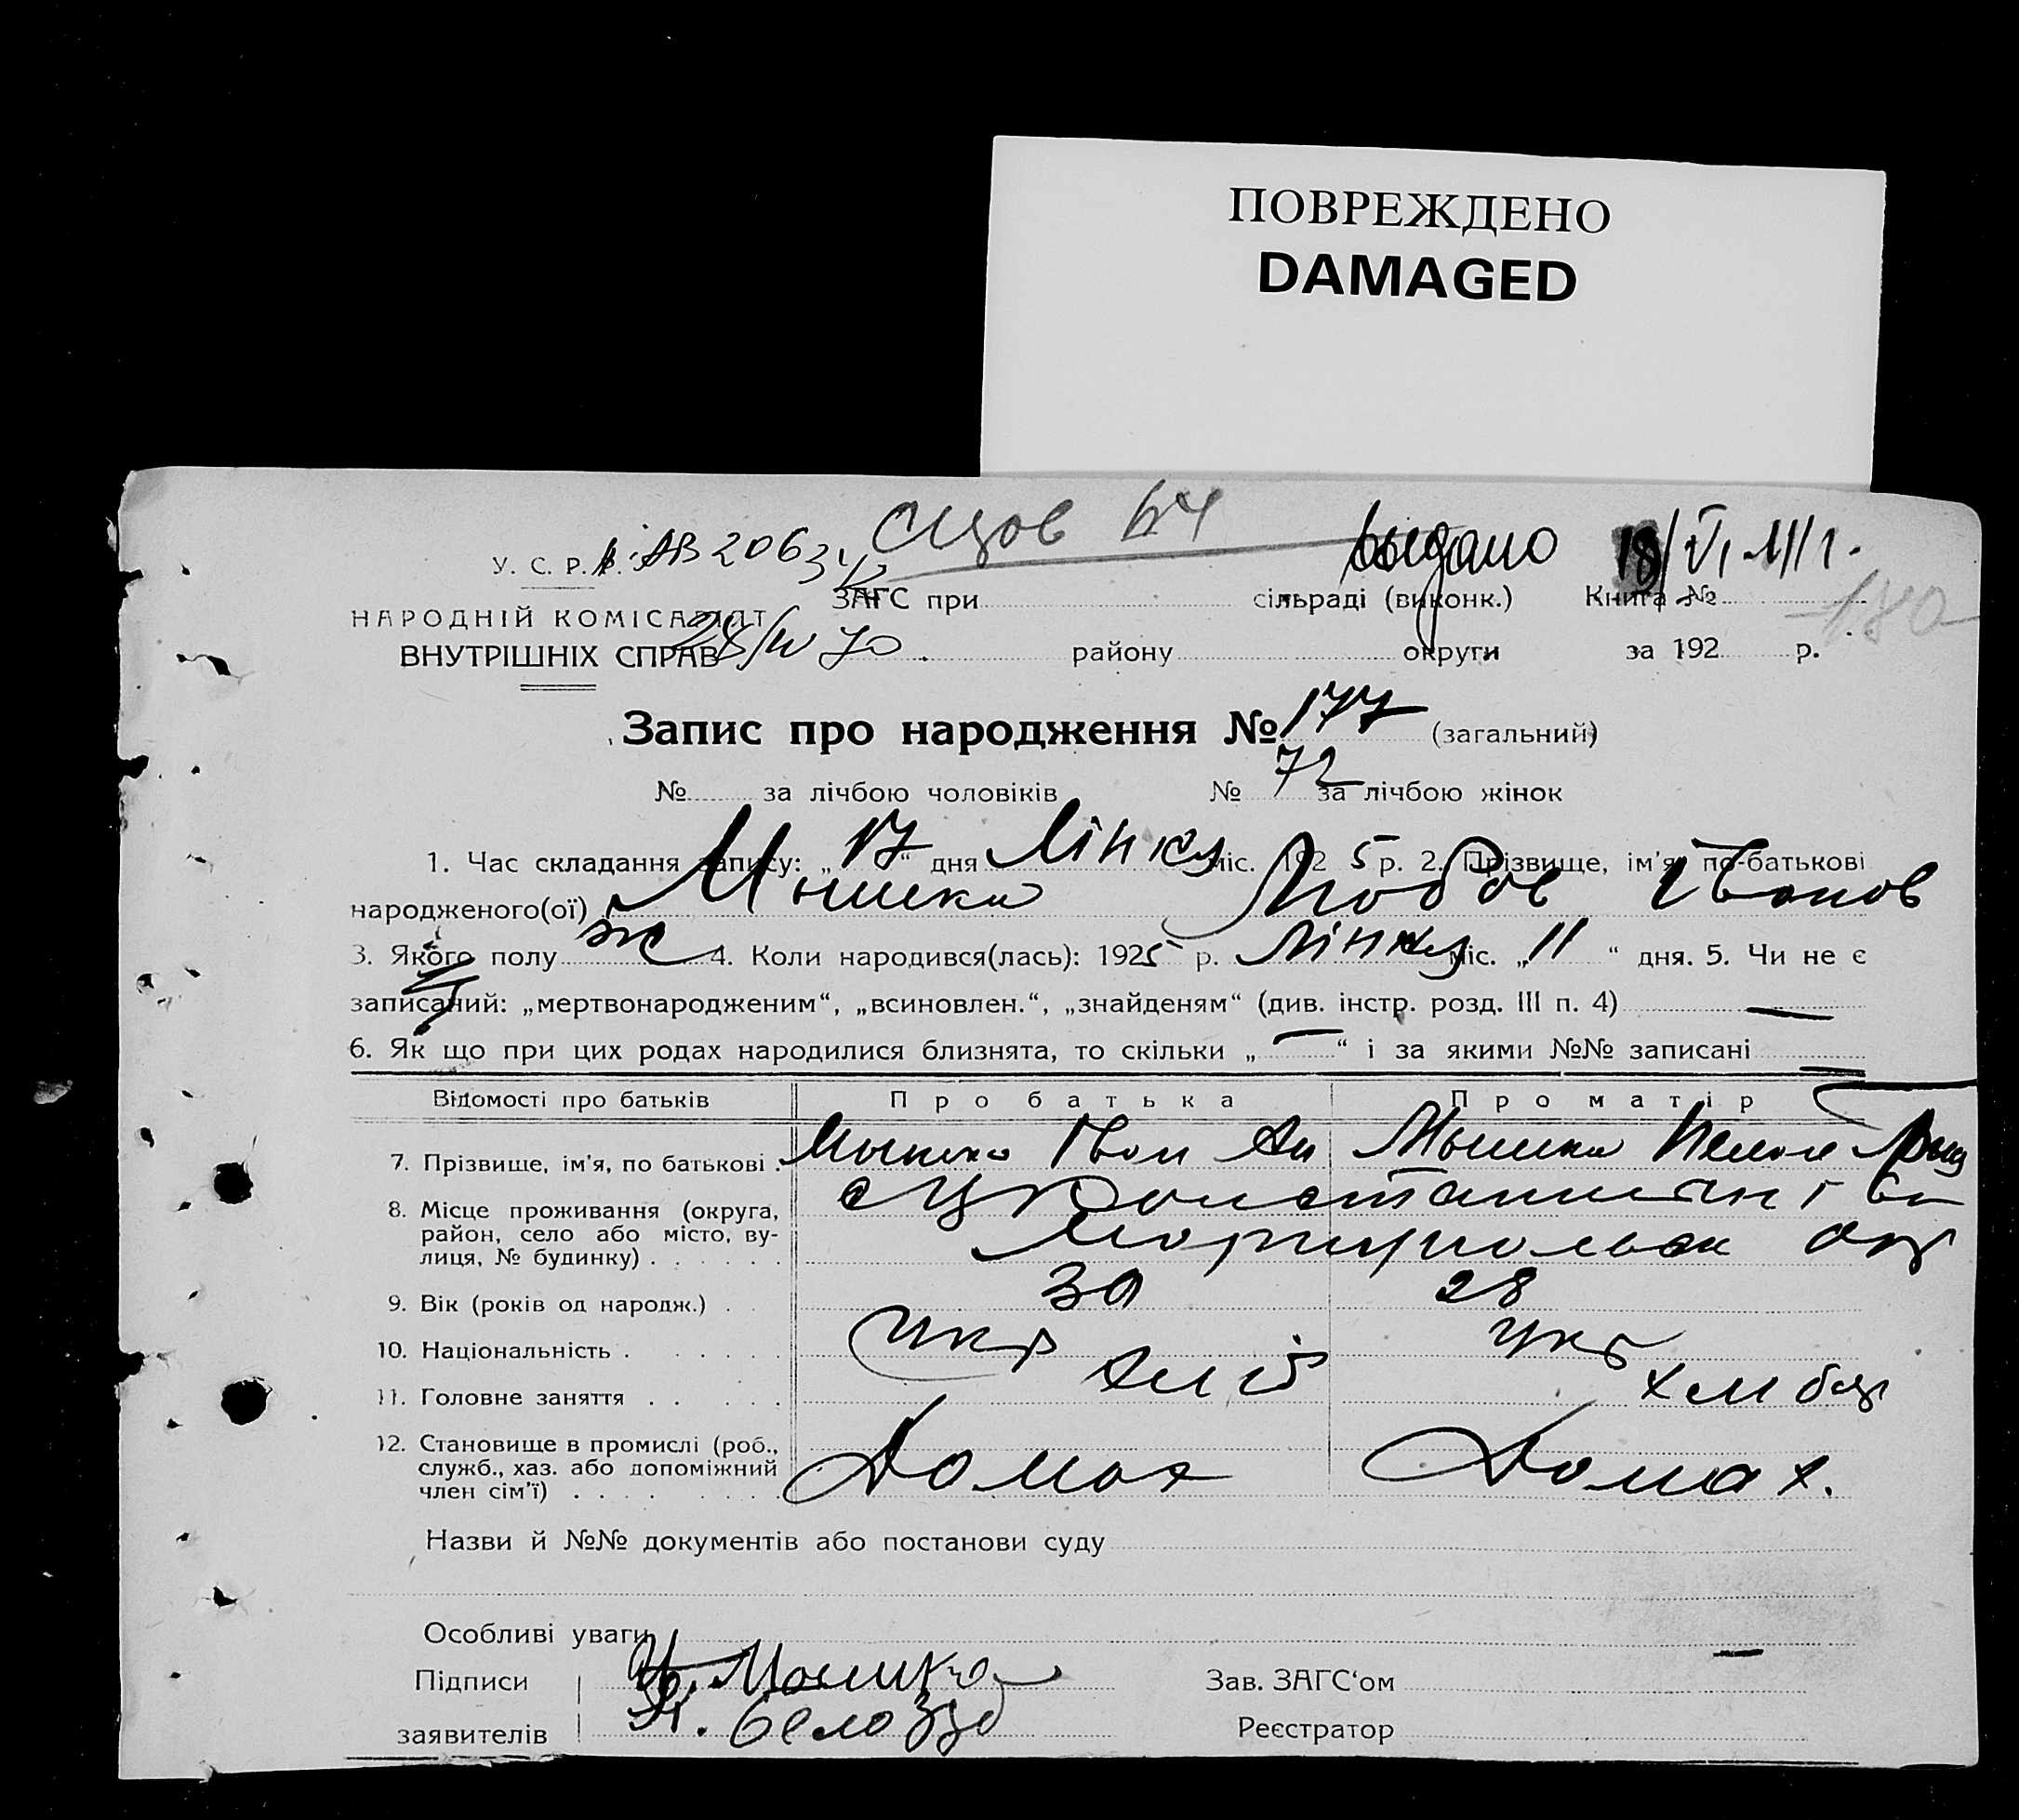 ПОВРЕЖДЕНО
DAMAGED
выдано 18/VI
У. С. Р. Р. АВ 2063
ЗАГС при сільраді (виконк.) Книга № 180
НАРОДНІЙ КОМІСАРІАТ
ВНУТРІШНІХ СПРАВ 70 району округи за 192 р.
Запис про народження № 177 (загальний)
№ за лічбою чоловіків № 72 за лічбою жінок
1. Час складання запису: „17“ дня Ління міс. 1925 р. 2. Прізвище, ім'я, по-батькові
народженого(ої) Мишка Любов Іванов
3. Якого полу ж 4. Коли народився(лась): 1925 р. міс. „11“ дня. 5. Чи не є
записаний: „мертвонародженим“, „всиновлен.“, „знайденям“ (див. інстр. розд. III п. 4) —
6. Як що при цих родах народилися близнята, то скільки „—“ і за якими №№ записані —
Відомості про батьків Про батька Про матір
7. Прізвище, ім'я, по батькові . Мышка Іван Ан Мышка
8. Місце проживання (округа,
район, село або місто, ву-
лиця, № будинку) . . . . . . Маріупольск окр
9. Вік (років од народж.) . 30 28
10. Національність . . . . . . Укр Укр
11. Головне заняття . . . . . хліб хлібор
12. Становище в промислі (роб.,
служб., хаз. або допоміжний
член сім'ї) . . . . . . . . Домах Домах.
Назви й №№ документів або постанови суду
Особливі уваги —
Підписи Мышка Зав. ЗАГС‘ом
заявителів Реєстратор